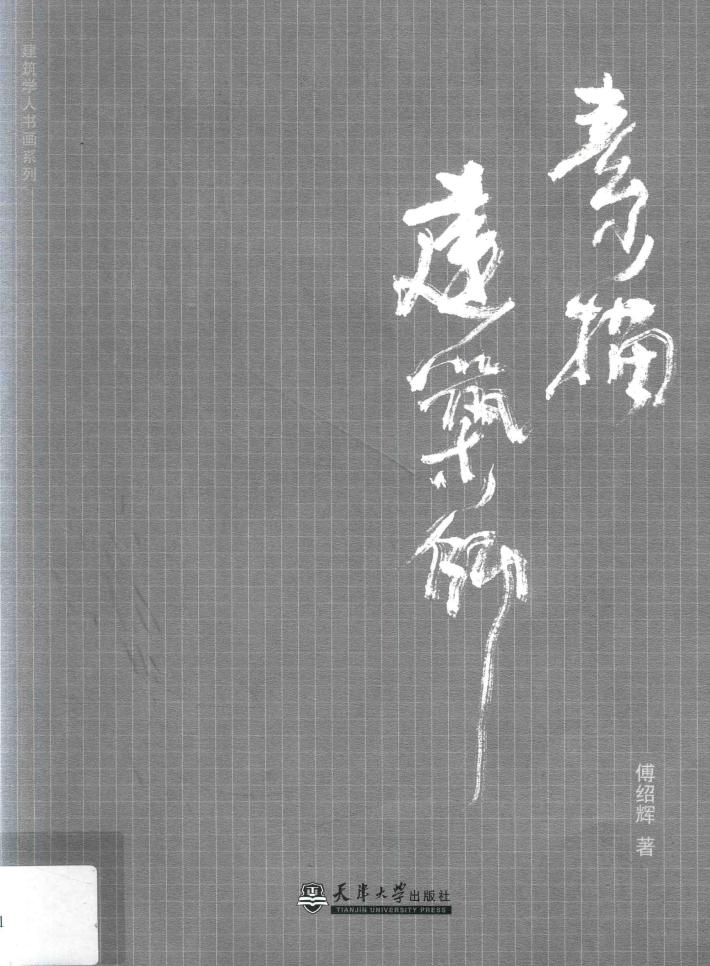 建筑学人书画系列
素描
建築師
傅绍辉 著
天津大学出版社
TIANJIN UNIVERSITY PRESS
1